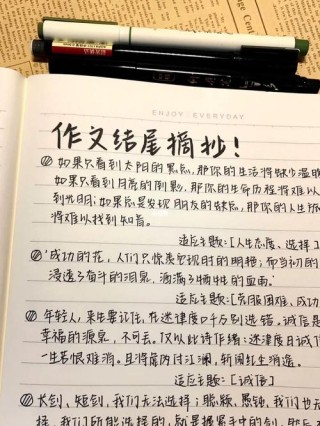 ENJOY EVERYDAY
作文结尾摘抄!
① 如果只看到太阳的黑点,那你的生活将缺少温暖
如果只看到月亮的阴影,那你的生命历程将难以
到光明;如果总是发现朋友的缺点,那你的人生旅
将难以找到知音。
适合主题:[人生态度、选择]
② "成功的花,人们只惊羡它现时的明艳;而当初的
浸透了奋斗的泪泉,洒满了牺牲的血雨."
适合主题:[克服困难、成功
③ 年轻人,来生要记住,在迷津渡口千万别选错。诚信是
幸福的源泉,不可丢。仅以此诗作结:迷津度日诚信
一生若恨难消。且将腐肉付江澜,斩闹红尘消遥。
适合主题:[诚信]
长剑、短剑,我们无法选择;聪颖、愚钝,我们也无
择。我们所能选择的,就是握紧手中的剑,然后